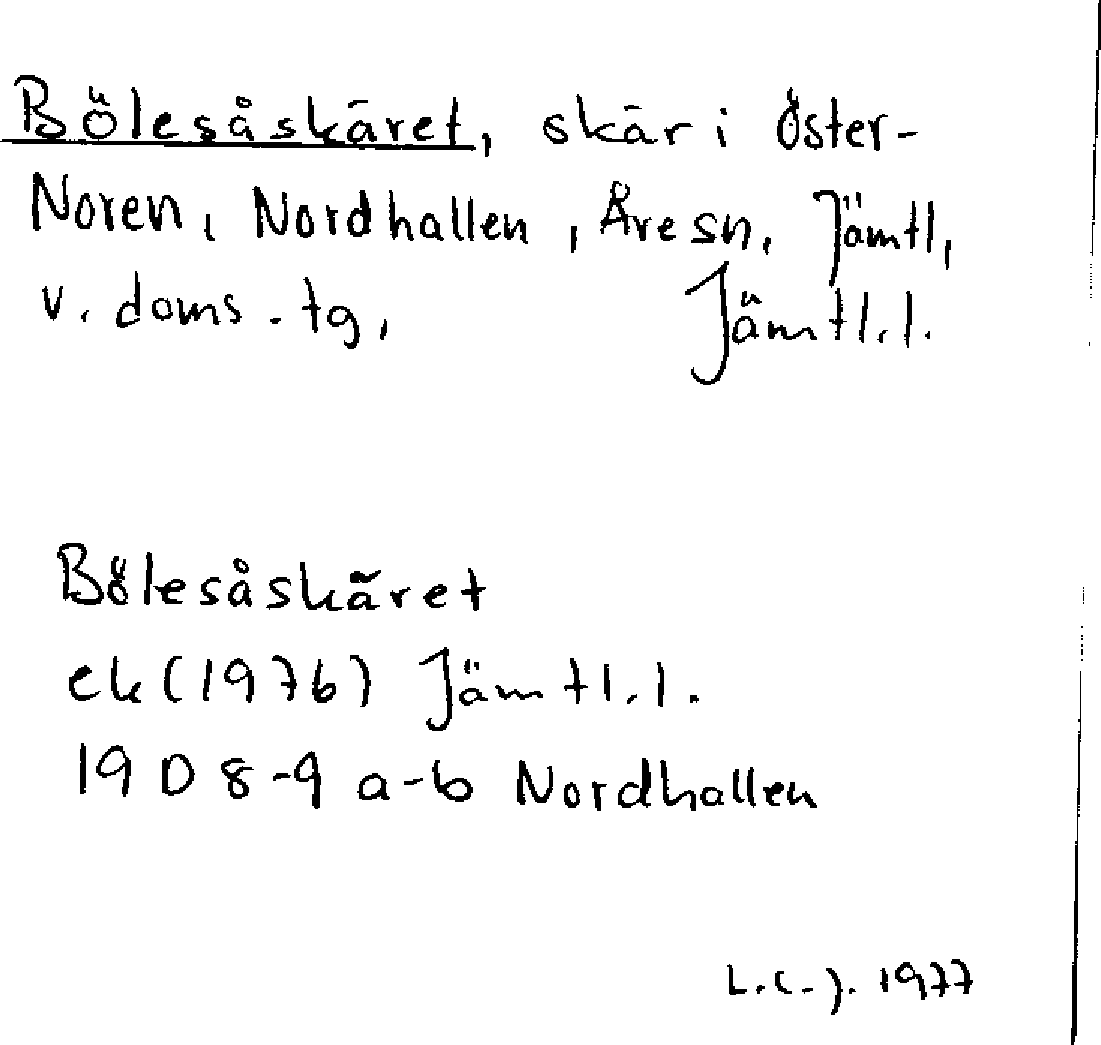 Bölesåskäret, skär i Öster-
Noren, Nordhallen, Åre sn, Jämtl,
v. doms. tg,  Jämtl.l.
Bölesåskäret
ek (1976) Jämtl.l.
19 D 8-9 a-b Nordhallen
L.C-J. 1977